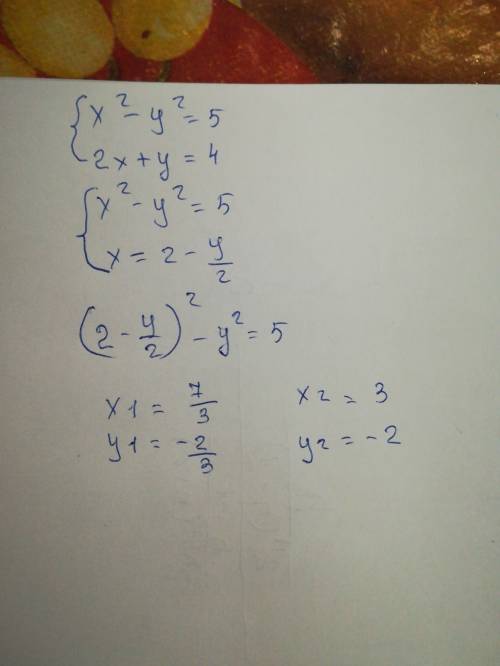 { x² - y² = 5
2x + y = 4
{ x² - y² = 5
x = 2 - y/2
(2 - y/2)² - y² = 5
x1 = 7/3 x2 = 3
y1 = -2/3 y2 = -2